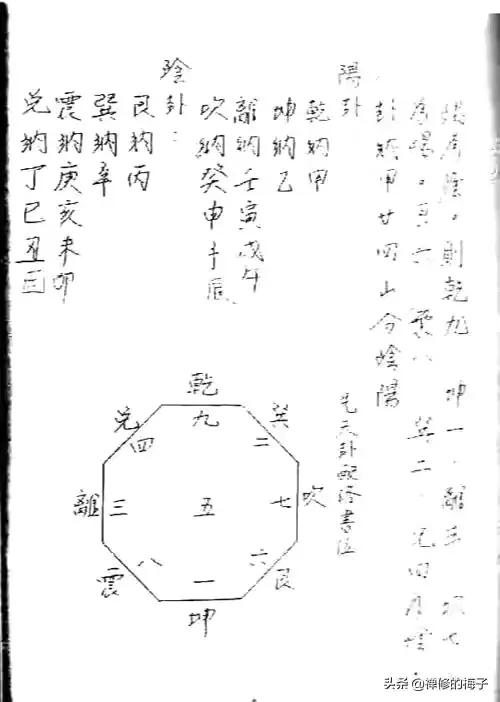 為陰。則乾九 坤一、離三 坎七
為陽。艮六 震八 巽二、兌四為陰。
卦納甲廿四山分陰陽
陽卦
乾納甲
坤納乙
離納壬寅戌午
坎納癸申子辰
陰卦：
艮納丙
巽納辛
震納庚亥未卯
兌納丁巳丑酉
先天卦配洛書位
乾 九
巽 二
坎 七
艮 六
坤 一
震 八
離 三
兌 四
五
头条 @禅修的梅子